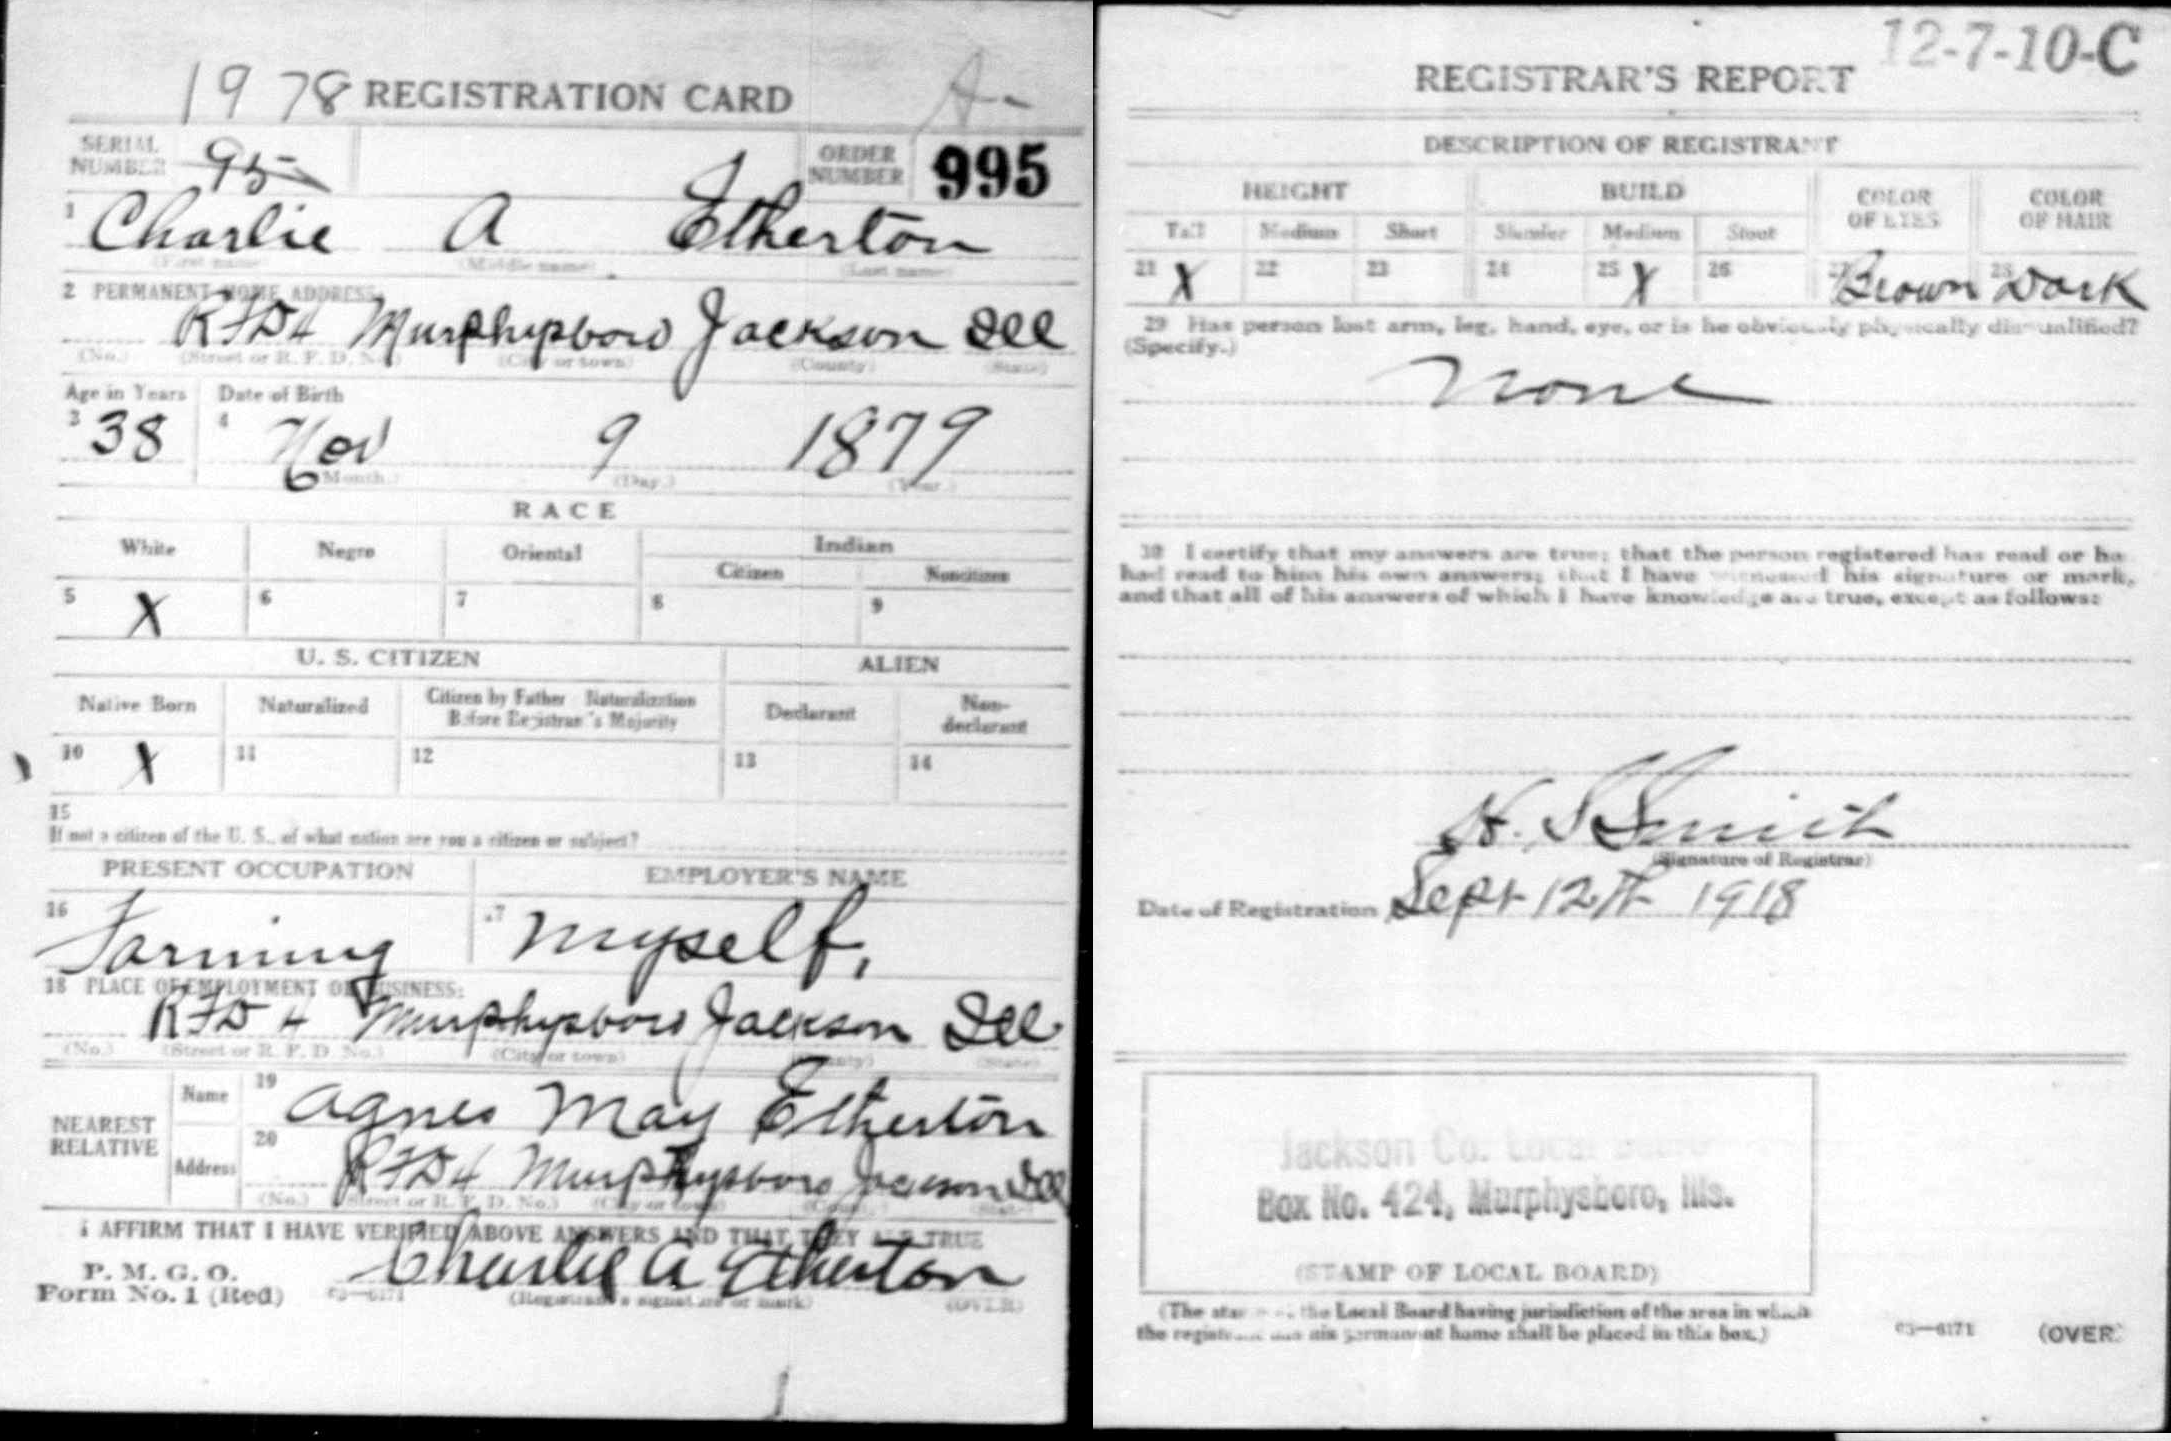 1978 REGISTRATION CARD A-
SERIAL NUMBER 95 ORDER NUMBER 995
1 Charlie A Etherton
(First name) (Middle name) (Last name)
2 PERMANENT HOME ADDRESS:
RFD 4 Murphysboro Jackson Ill
(No.) (Street or R. F. D. No.) (City or town) (County) (State)
Age in Years Date of Birth
3 38 4 Nov 9 1879
(Month.) (Day.) (Year.)
RACE
White Negro Oriental Indian
Citizen Noncitizen
5 X 6 7 8 9
U. S. CITIZEN ALIEN
Native Born Naturalized Citizen by Father's Naturalization Before Registrant's Majority Declarant Non-declarant
10 X 11 12 13 14
15
If not a citizen of the U. S., of what nation are you a citizen or subject?
PRESENT OCCUPATION EMPLOYER'S NAME
16 Farming 17 Myself,
18 PLACE OF EMPLOYMENT OR BUSINESS:
RFD 4 Murphysboro Jackson Ill
(No.) (Street or R. F. D. No.) (City or town) (County) (State)
NEAREST RELATIVE Name 19 Agnes May Etherton
Address 20 RFD 4 Murphysboro Jackson Ill
(No.) (Street or R. F. D. No.) (City or town) (County) (State)
I AFFIRM THAT I HAVE VERIFIED ABOVE ANSWERS AND THAT THEY ARE TRUE
P. M. G. O.
Form No. 1 (Red) 03—6171 Charlie A Etherton
(Registrant's signature or mark) (OVER)
12-7-10-C
REGISTRAR'S REPORT
DESCRIPTION OF REGISTRANT
HEIGHT BUILD COLOR OF EYES COLOR OF HAIR
Tall Medium Short Slender Medium Stout
21 X 22 23 24 25 X 26 27 Brown 28 Dark
29 Has person lost arm, leg, hand, eye, or is he obviously physically disqualified?
(Specify.)
None
30 I certify that my answers are true; that the person registered has read or has
had read to him his own answers; that I have witnessed his signature or mark,
and that all of his answers of which I have knowledge are true, except as follows:
H. S Smith
(Signature of Registrar)
Date of Registration Sept 12th 1918
Jackson Co. Local Board
Box No. 424, Murphysboro, Ills.
(STAMP OF LOCAL BOARD)
(The stamp of the Local Board having jurisdiction of the area in which
the registrant has his permanent home shall be placed in this box.)
03—6171 (OVER)